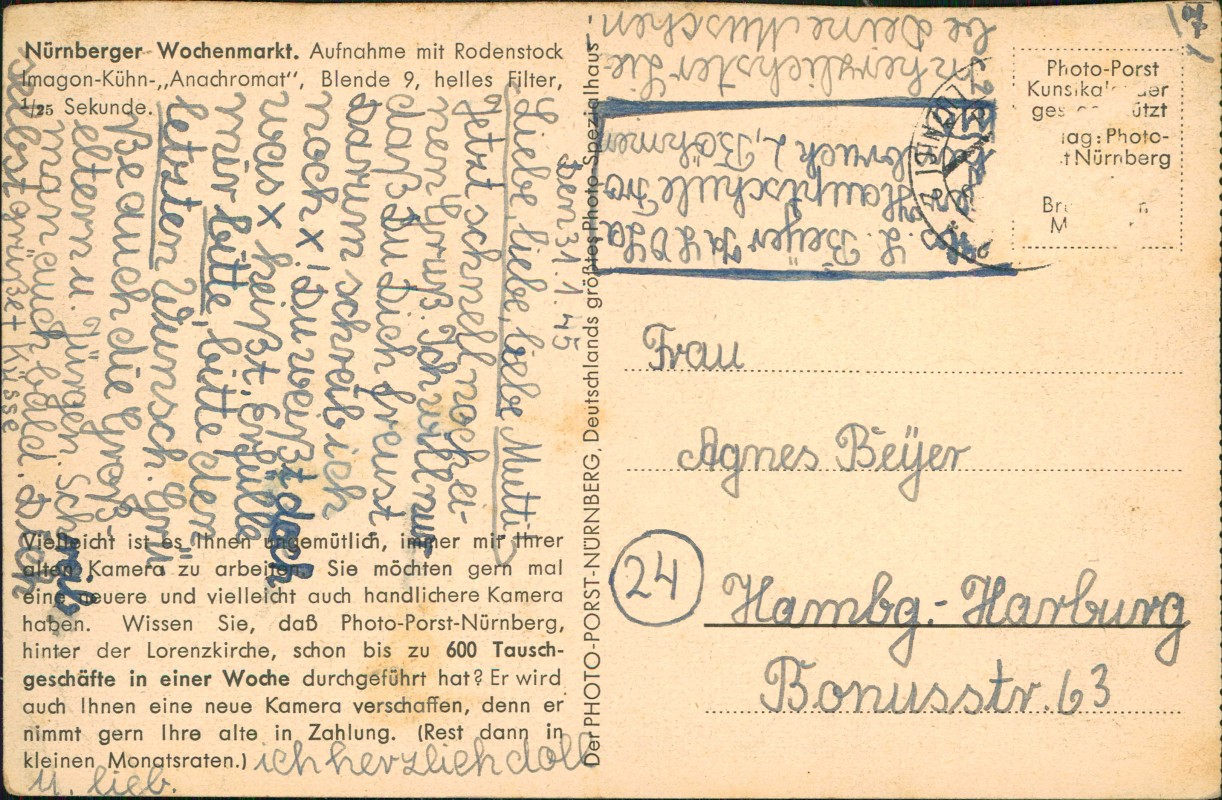 Nürnberger Wochenmarkt. Aufnahme mit Rodenstock
Imagon-Kühn-„Anachromat“, Blende 9, helles Filter,
1/25 Sekunde.
den 31.1.45
Liebe, liebe, liebe Mutti!
Jetzt schnell noch ei-
nen Gruß. Ich will nur
daß Du Dich freust
Darum schreib ich
noch x! Du weißt doch
was x heißt. Erfülle
mir bitte, bitte den
letzten Wunsch. Grü
ße auch die Groß,
eltern u. Jürgen. Schreib
morgen euch bald. Dich
selbst grüßt + Küsse
ich herzlich doll
u. lieb.
Vielleicht ist es Ihnen ungemütlich, immer mit Ihrer
alten Kamera zu arbeiten. Sie möchten gern mal
eine neuere und vielleicht auch handlichere Kamera
haben. Wissen Sie, daß Photo-Porst-Nürnberg,
hinter der Lorenzkirche, schon bis zu 600 Tausch-
geschäfte in einer Woche durchgeführt hat? Er wird
auch Ihnen eine neue Kamera verschaffen, denn er
nimmt gern Ihre alte in Zahlung. (Rest dann in
kleinen Monatsraten.)
Der PHOTO-PORST-NÜRNBERG, Deutschlands größtes Photo-Spezialhaus.
Beÿer
Hauptschule
Böhmen
herzlichster Lie-
be Deine
Photo-Porst
geschützt
Photo-
Nürnberg
Frau
Agnes Beÿer
24
Hambg.-Harburg
Bonusstr. 63